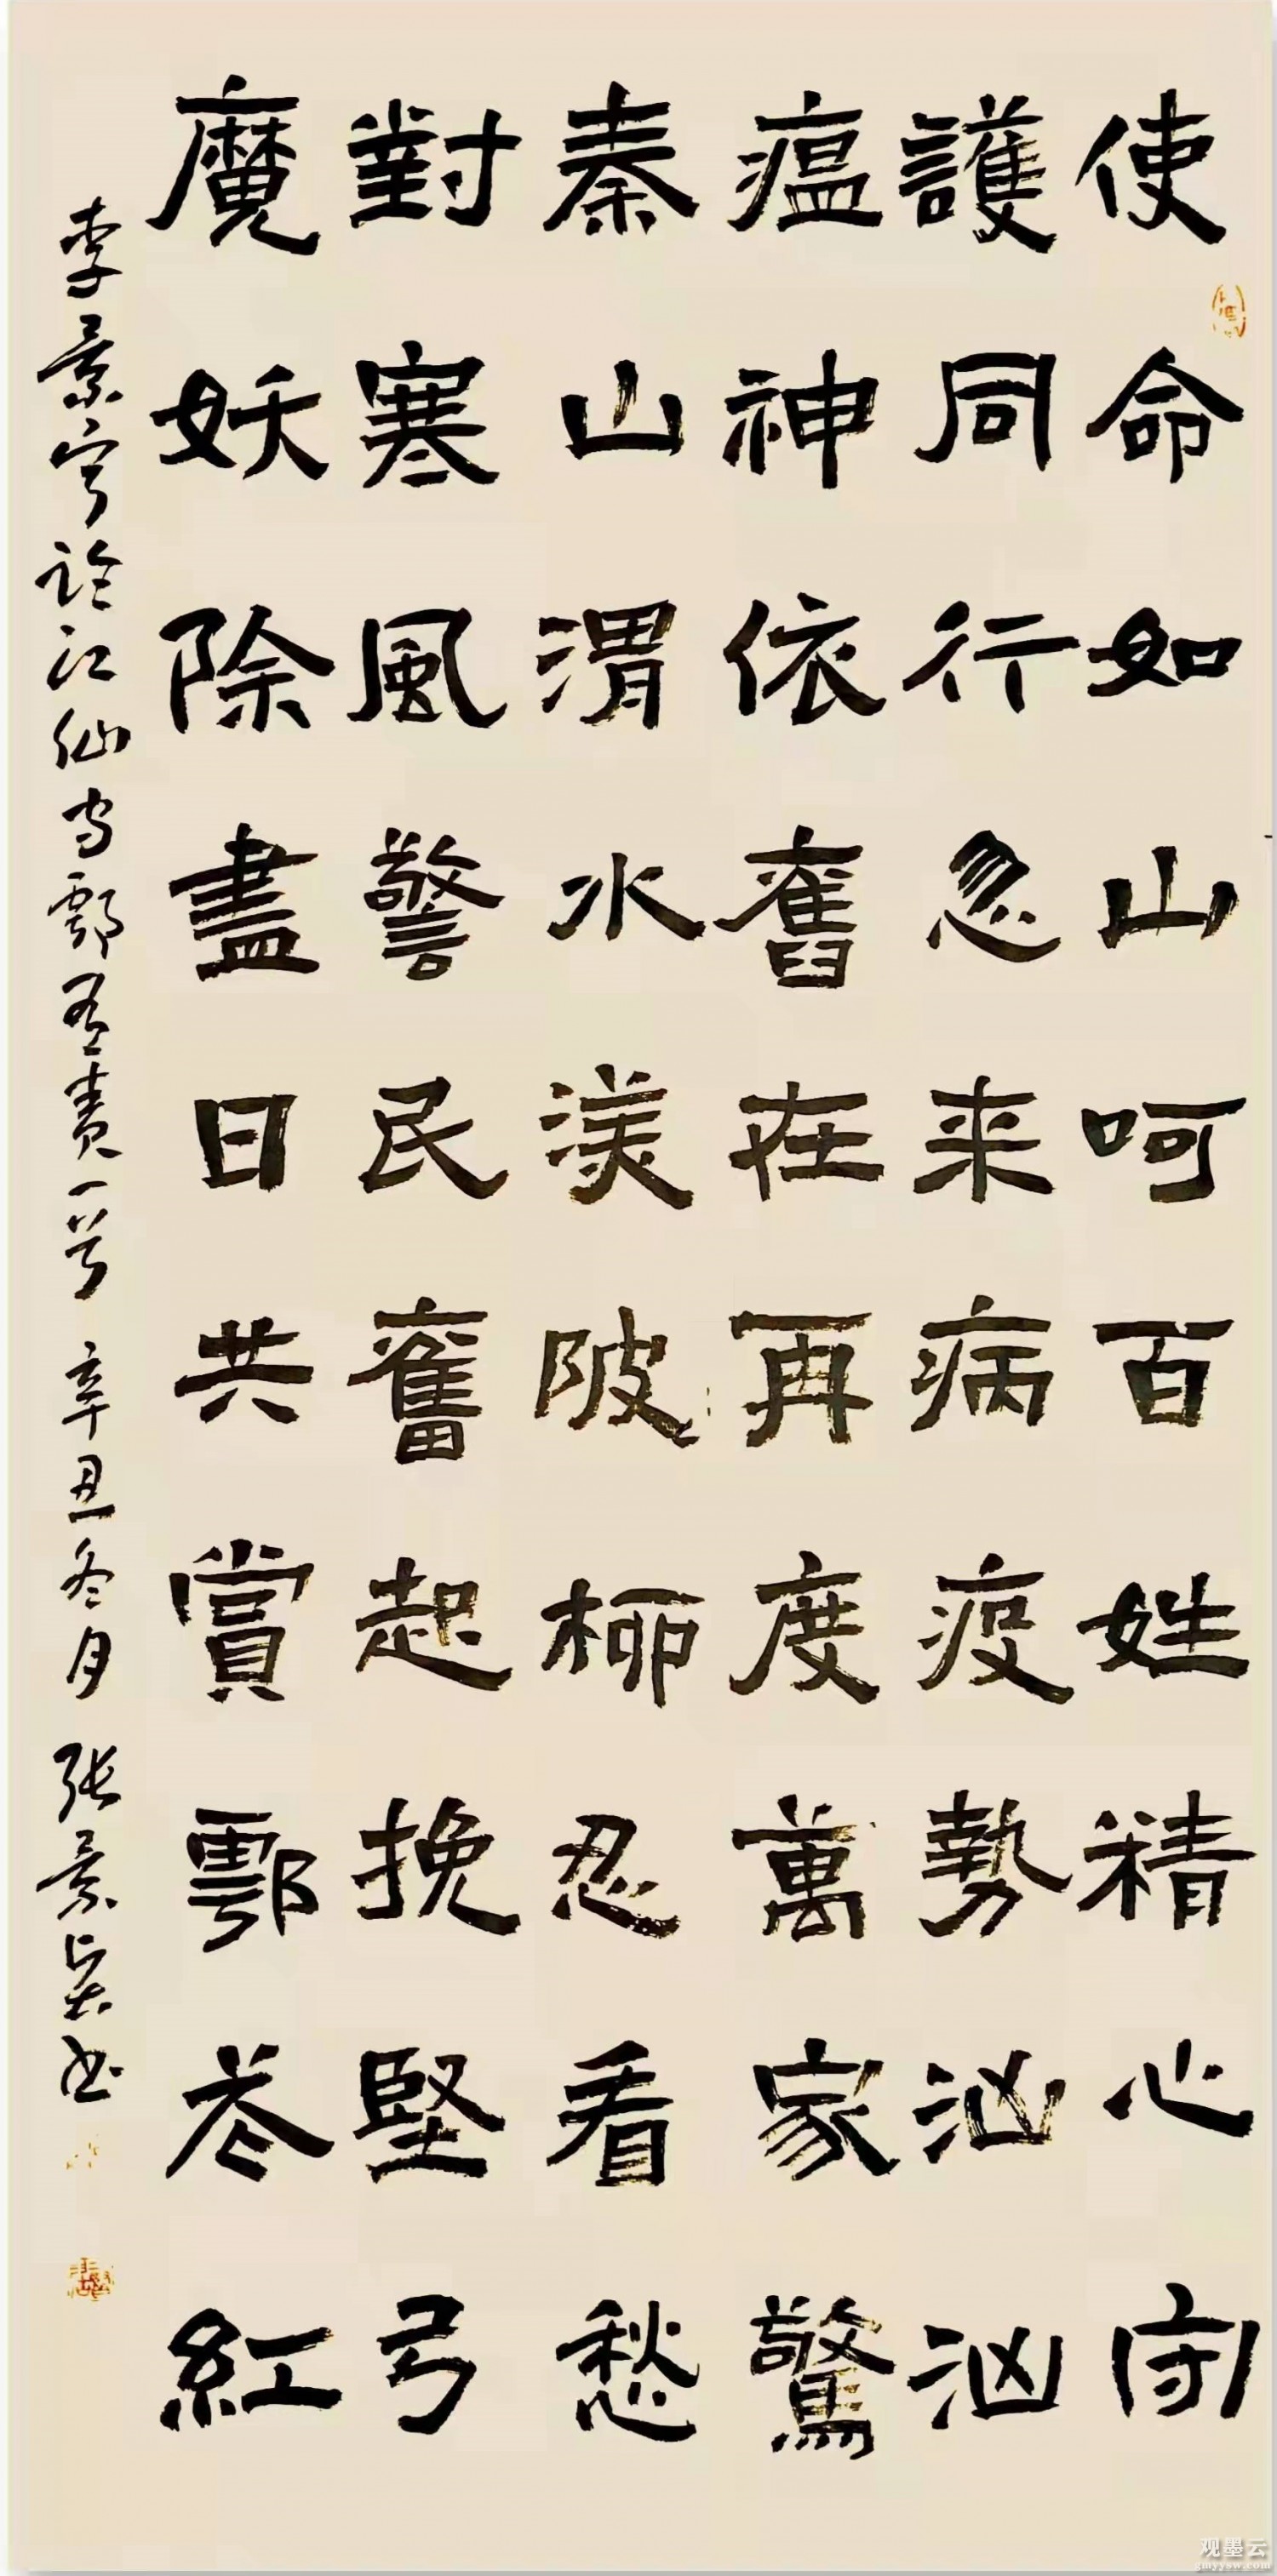 使命如山呵百姓精心守
護同行忽来病疫勢汹汹
瘟神依舊在再度萬家驚
秦山渭水渼陂柳忍看愁
對寒風警民奮起挽堅弓
魔妖除盡日共賞鄠紅
李景宁临江仙守鄠有责一首 辛丑冬月 张景书
观墨云
gmyysw.com